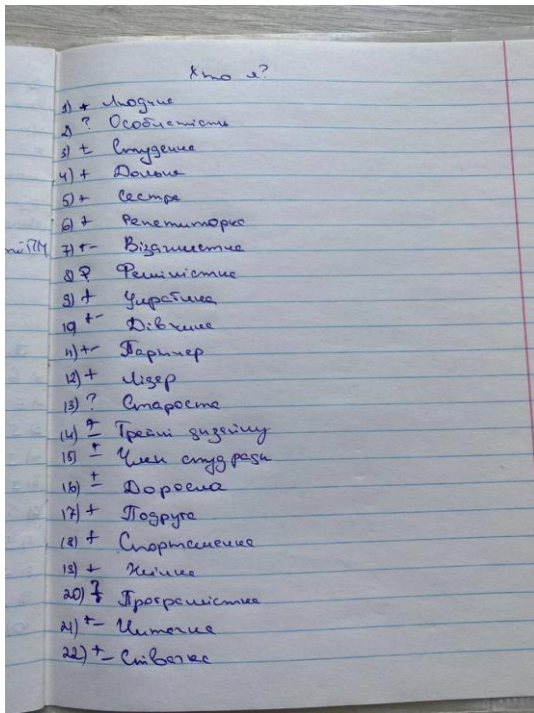 Хто я?
1) + Людина
2) ? Особистість
3) ± Студентка
4) + Донька
5) + Сестра
6) + Репетиторка
7) +- Візажистка
8) ? Феміністка
9) + Українка
10 +- Дівчина
11) +- Партнер
12) + Лідер
13) ? Староста
14) ± дизайну
15) ± Член студ ради
16) ± Доросла
17) + Подруга
18) + Спортсменка
19) + Жінка
20) ? Програмістка
21) +- Читачка
22) +- Співачка